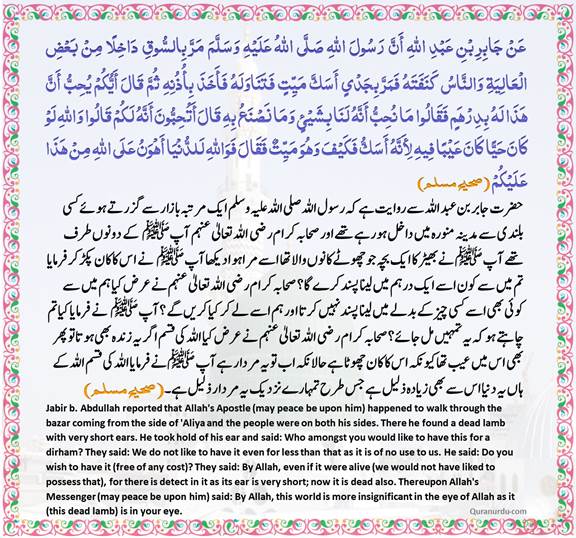 عَنْ جَابِرِ بْنِ عَبْدِ اللهِ أَنَّ رَسُولَ اللهِ صَلَّى اللهُ عَلَيْهِ وَسَلَّمَ مَرَّ بِالسُّوقِ دَاخِلًا مِنْ بَعْضِ
الْعَالِيَةِ وَالنَّاسُ كَنَفَتَهُ فَمَرَّ بِجَدْيٍ أَسَكَّ مَيِّتٍ فَتَنَاوَلَهُ فَأَخَذَ بِأُذُنِهِ ثُمَّ قَالَ أَيُّكُمْ يُحِبُّ أَنَّ
هَذَا لَهُ بِدِرْهَمٍ فَقَالُوا مَا نُحِبُّ أَنَّهُ لَنَا بِشَيْئٍ وَمَا نَصْنَعُ بِهِ قَالَ أَتُحِبُّونَ أَنَّهُ لَكُمْ قَالُوا وَاللهِ لَوْ
كَانَ حَيًّا كَانَ عَيْبًا فِيهِ لِأَنَّهُ أَسَكُّ فَكَيْفَ وَهُوَ مَيِّتٌ فَقَالَ فَوَاللهِ لَلدُّنْيَا أَهْوَنُ عَلَى اللهِ مِنْ هَذَا
عَلَيْكُمْ (صحیح مسلم)
حضرت جابر بن عبد اللہ سے روایت ہے کہ رسول اللہ صلی اللہ علیہ وسلم ایک مرتبہ بازار سے گزرتے ہوئے کسی
بلندی سے مدینہ منورہ میں داخل ہو رہے تھے اور صحابہ کرام رضی اللہ تعالی عنہم آپ ﷺ کے دونوں طرف
تھے آپ ﷺ نے بھیڑ کا ایک بچہ جو چھوٹے کانوں والا تھا اسے مرا ہوا دیکھا آپ ﷺ نے اس کا کان پکڑ کر فرمایا
تم میں سے کون اسے ایک درہم میں لینا پسند کرے گا؟ صحابہ کرام رضی اللہ تعالی عنہم نے عرض کیا ہم میں سے
کوئی بھی اسے کسی چیز کے بدلے میں لینا پسند نہیں کرتا اور ہم اسے لے کر کیا کریں گے؟ آپ ﷺ نے فرمایا کیا تم
چاہتے ہو کہ یہ تمہیں مل جائے؟ صحابہ کرام رضی اللہ تعالی عنہم نے عرض کیا اللہ کی قسم اگر یہ زندہ بھی ہوتا تو پھر
بھی اس میں عیب تھا کیونکہ اس کا کان چھوٹا ہے حالانکہ اب تو یہ مردار ہے آپ ﷺ نے فرمایا اللہ کی قسم اللہ کے
ہاں یہ دنیا اس سے بھی زیادہ ذلیل ہے جس طرح تمہارے نزدیک یہ مردار ذلیل ہے۔ (صحیح مسلم)
Jabir b. Abdullah reported that Allah's Apostle (may peace be upon him) happened to walk through the
bazar coming from the side of 'Aliya and the people were on both his sides. There he found a dead lamb
with very short ears. He took hold of his ear and said: Who amongst you would like to have this for a
dirham? They said: We do not like to have it even for less than that as it is of no use to us. He said: Do you
wish to have it (free of any cost)? They said: By Allah, even if it were alive (we would not have liked to
possess that), for there is detect in it as its ear is very short; now it is dead also. Thereupon Allah's
Messenger (may peace be upon him) said: By Allah, this world is more insignificant in the eye of Allah as it
(this dead lamb) is in your eye.
Quranurdu.com